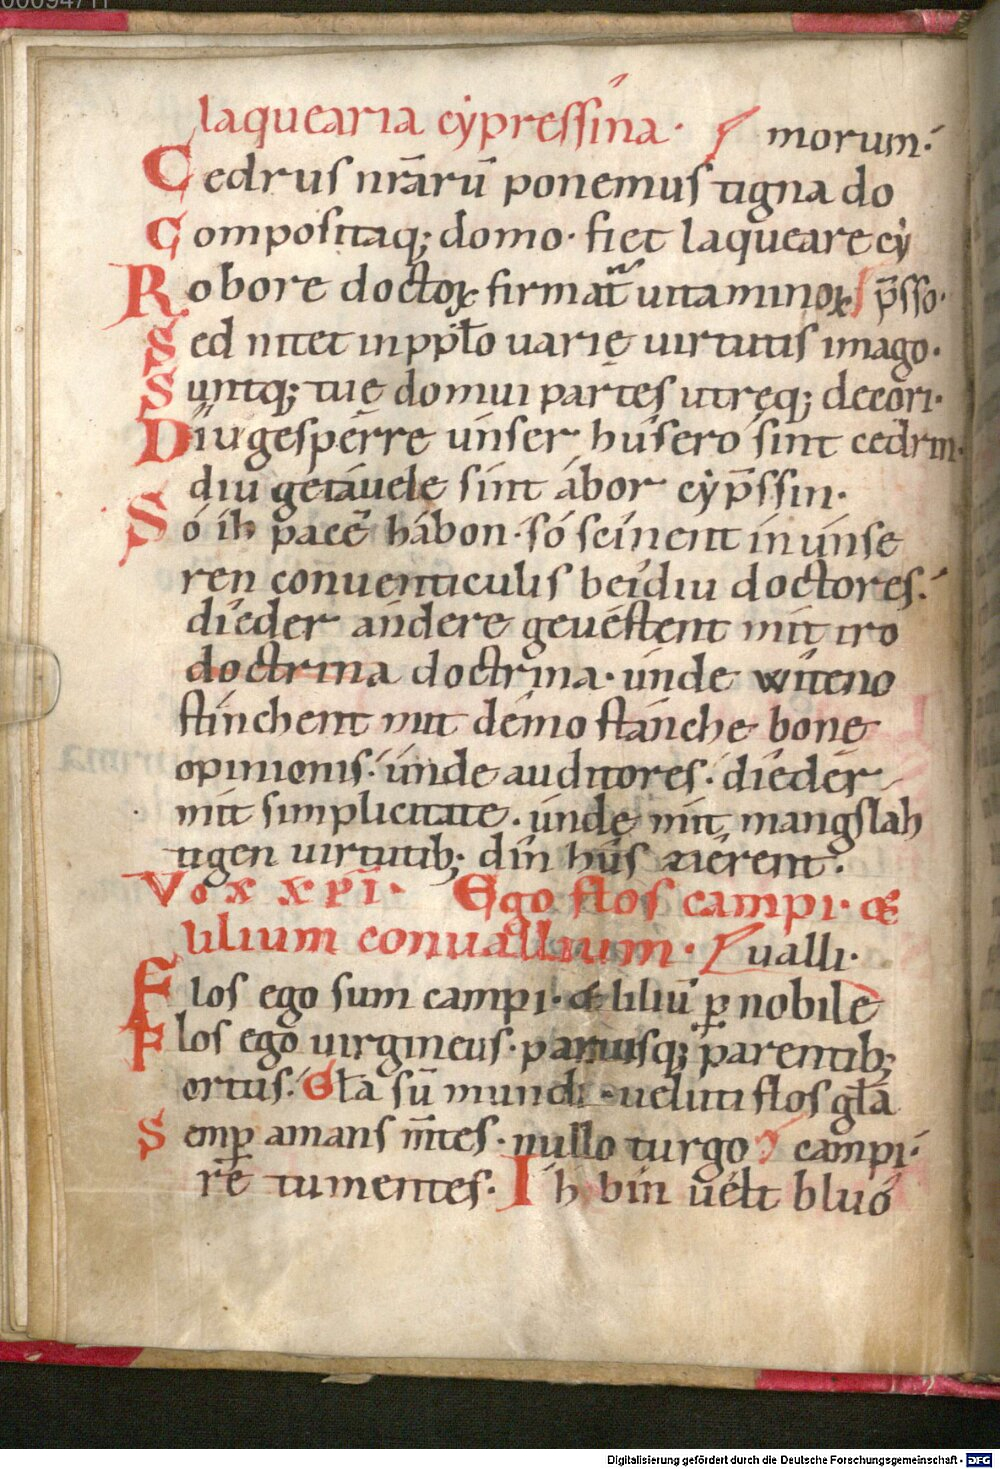 00094711
laquearia cẏpressina· morum·
Cedrus nr̄arū ponemus tigna do
Compositaq; domo· fiet laqueare cẏ
Robore doctoꝝ firmat̄ uita minoꝝ p̄sso·
Sed nitet in pplo uarię uirtutis imago·
Suntq; tuę domui partes utreq; decori·
Diu gespérre únser húsero sint cedrin·
diu getáuele sint ábor cẏp̄ssin·
Só ih pacē hábon· só scínent in únse
ren conuenticulis beídiu doctores·
díeder ándere geuéstent mit iro
doctrina doctrina· únde wíteno
stínchent mit démo stánche bonę
opinionis· únde auditores· díeder
mit simplicitate· únde mít mangslah
tigen uirtutib; dín hûs ziérent·
Vox xp̄i· Ego flos campi· &
lilium conuallium· ualli·
Flos ego sum campi· & liliū ꝑ nobile
Flos ego uirgineus· paruisq; parentib;
ortus· Gła sū mundi· ueluti flos gła
Semꝑ amans m̄tes· nullo turgo campi·
rē tumentes· Ih bín uélt bluó
Digitalisierung gefördert durch die Deutsche Forschungsgemeinschaft - DFG